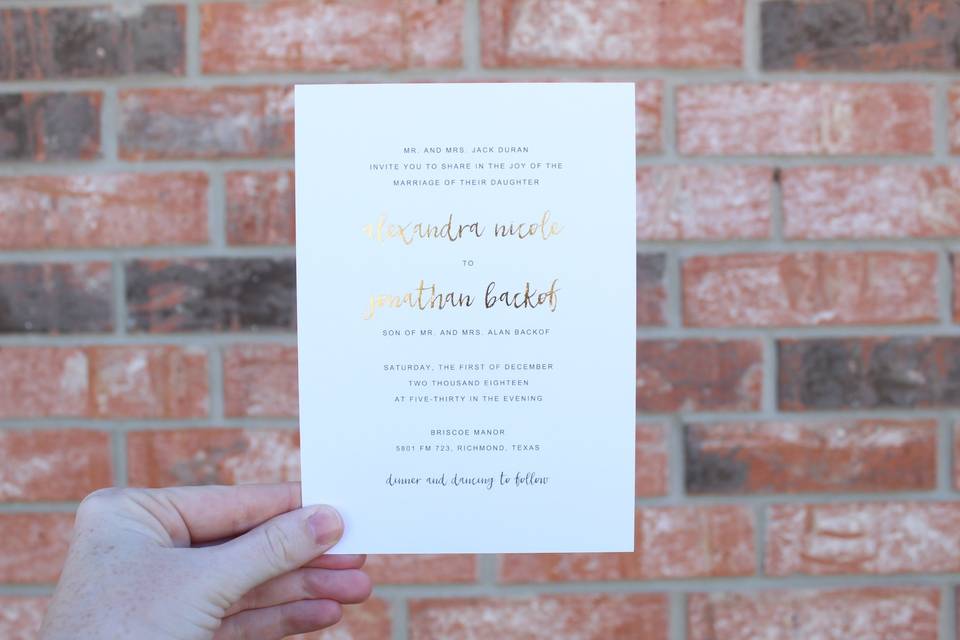 MR. AND MRS. JACK DURAN
INVITE YOU TO SHARE IN THE JOY OF THE
MARRIAGE OF THEIR DAUGHTER
alexandra nicole
TO
jonathan backof
SON OF MR. AND MRS. ALAN BACKOF
SATURDAY, THE FIRST OF DECEMBER
TWO THOUSAND EIGHTEEN
AT FIVE-THIRTY IN THE EVENING
BRISCOE MANOR
5801 FM 723, RICHMOND, TEXAS
dinner and dancing to follow